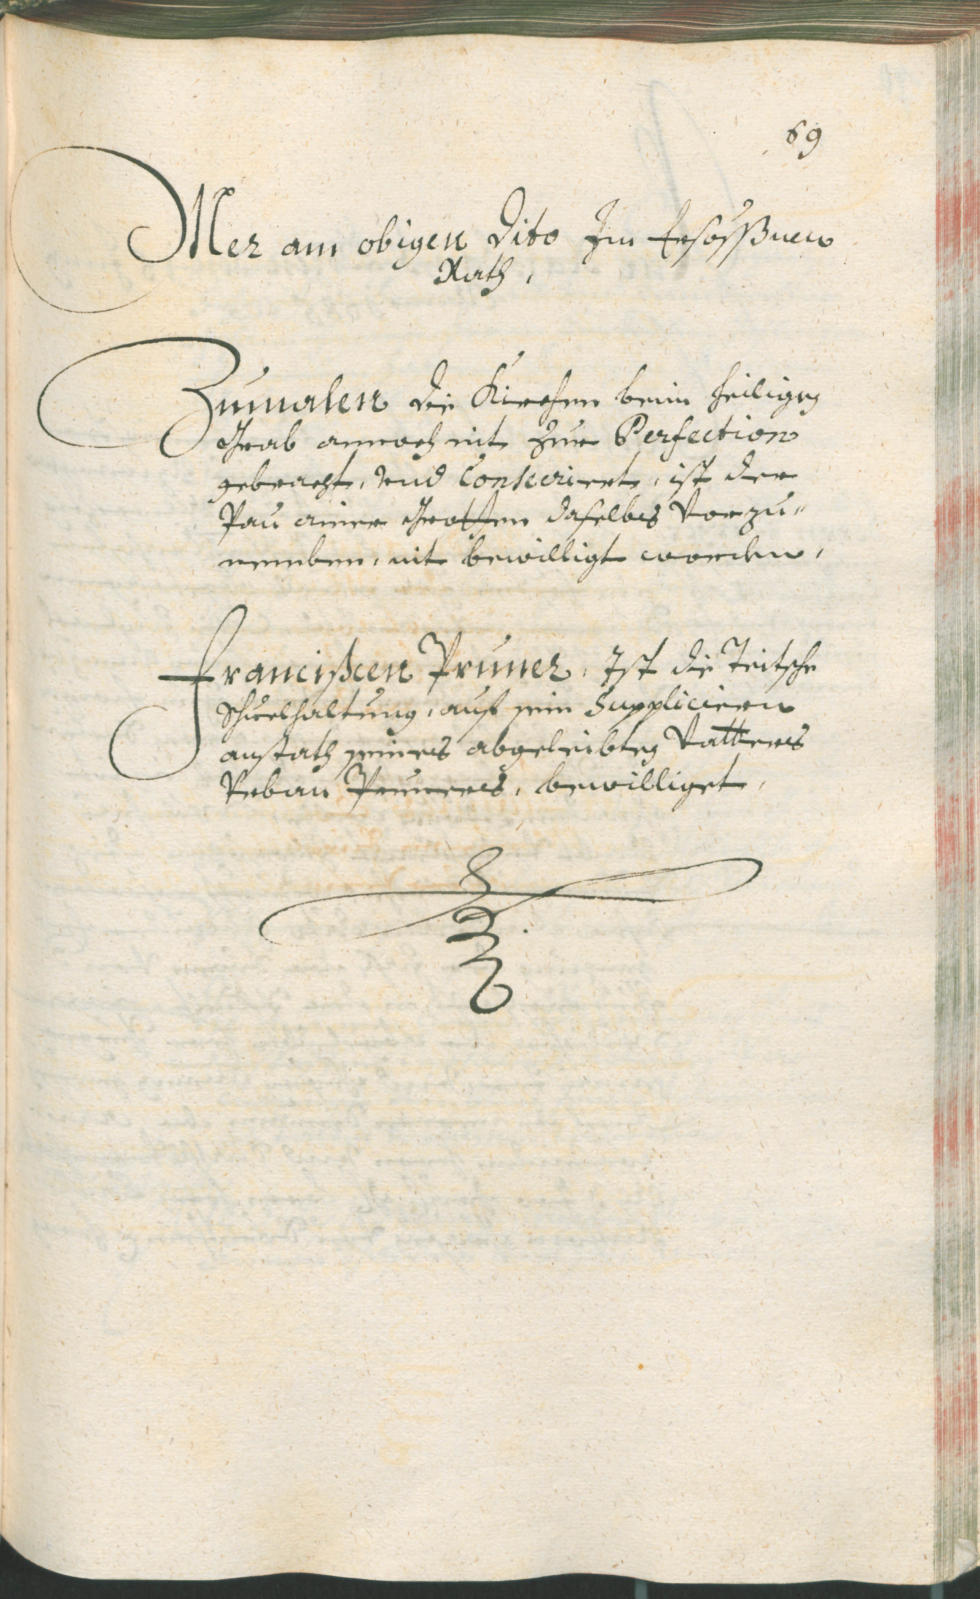 69
Mer am obigen dito Im Gesössnen
Rath,
Zumalen die Kirchen beim heiligen
Grab annoch nit zur Perfection
gebracht, vnd Consecriert, ist der
Pau ainer Grotten daselbs vorzu"
nemben, nit bewilligt worden,
Francißcen Pruner, Ist die Teitsche
Schuelhaltung, auf sein Supplicieren
anstath seines abgeleibten Vatters
Vrban Pruners, bewilliget,